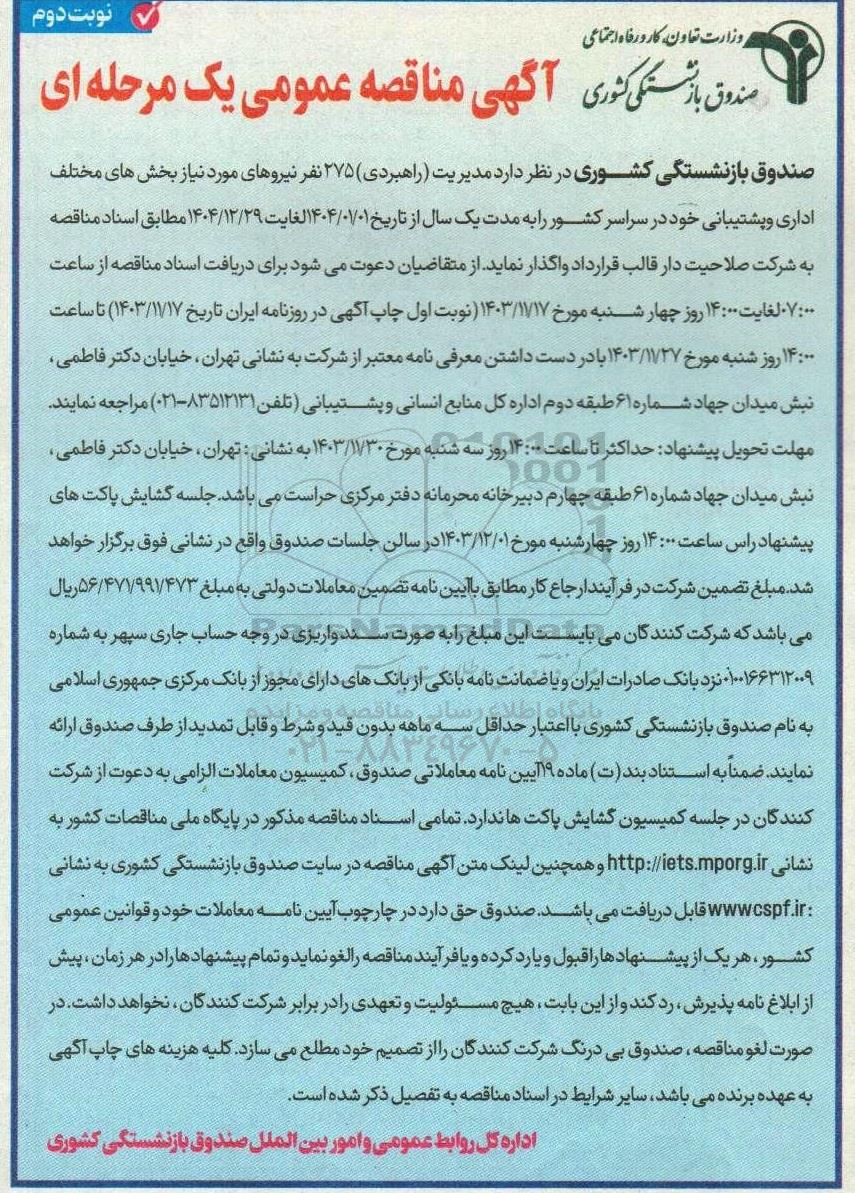 نوبت دوم
وزارت تعاون، کار و رفاه اجتماعی
صندوق بازنشستگی کشوری
آگهی مناقصه عمومی یک مرحله ای
صندوق بازنشستگی کشوری در نظر دارد مدیریت (راهبردی) ۲۷۵ نفر نیروهای مورد نیاز بخش های مختلف
اداری وپشتیبانی خود در سراسر کشور را به مدت یک سال از تاریخ ۱۴۰۴/۰۱/۰۱ لغایت ۱۴۰۴/۱۲/۲۹ مطابق اسناد مناقصه
به شرکت صلاحیت دار قالب قرارداد واگذار نماید. از متقاضیان دعوت می شود برای دریافت اسناد مناقصه از ساعت
۰۷:۰۰ لغایت ۱۴:۰۰ روز چهار شنبه مورخ ۱۴۰۳/۱۱/۱۷ (نوبت اول چاپ آگهی در روزنامه ایران تاریخ ۱۴۰۳/۱۱/۱۷) تا ساعت
۱۴:۰۰ روز شنبه مورخ ۱۴۰۳/۱۱/۲۷ با در دست داشتن معرفی نامه معتبر از شرکت به نشانی تهران ، خیابان دکتر فاطمی ،
نبش میدان جهاد شماره ۶۱ طبقه دوم اداره کل منابع انسانی و پشتیبانی (تلفن ۸۳۵۱۲۱۳۱-۰۲۱) مراجعه نمایند.
مهلت تحویل پیشنهاد: حداکثر تا ساعت ۱۴:۰۰ روز سه شنبه مورخ ۱۴۰۳/۱۱/۳۰ به نشانی : تهران ، خیابان دکتر فاطمی ،
نبش میدان جهاد شماره ۶۱ طبقه چهارم دبیرخانه محرمانه دفتر مرکزی حراست می باشد. جلسه گشایش پاکت های
پیشنهاد راس ساعت ۱۴:۰۰ روز چهارشنبه مورخ ۱۴۰۳/۱۲/۰۱ در سالن جلسات صندوق واقع در نشانی فوق برگزار خواهد
شد. مبلغ تضمین شرکت در فرآیند ارجاع کار مطابق با آیین نامه تضمین معاملات دولتی به مبلغ ۵۶/۴۷۱/۹۹۱/۴۷۳ ریال
می باشد که شرکت کنندگان می بایست این مبلغ را به صورت سند واریزی در وجه حساب جاری سپهر به شماره
۰۱۰۰۱۶۶۳۱۲۰۰۹ نزد بانک صادرات ایران و یا ضمانت نامه بانکی از بانک های دارای مجوز از بانک مرکزی جمهوری اسلامی
به نام صندوق بازنشستگی کشوری با اعتبار حداقل سه ماهه بدون قید و شرط و قابل تمدید از طرف صندوق ارائه
نمایند. ضمناً به استناد بند (ت) ماده ۱۹ آیین نامه معاملاتی صندوق ، کمیسیون معاملات الزامی به دعوت از شرکت
کنندگان در جلسه کمیسیون گشایش پاکت ها ندارد. تمامی اسناد مناقصه مذکور در پایگاه ملی مناقصات کشور به
نشانی http://iets.mporg.ir و همچنین لینک متن آگهی مناقصه در سایت صندوق بازنشستگی کشوری به نشانی
: wwwcspf.ir قابل دریافت می باشد. صندوق حق دارد در چارچوب آیین نامه معاملات خود و قوانین عمومی
کشور ، هر یک از پیشنهادها را قبول و یا رد کرده و یا فرآیند مناقصه را لغو نماید و تمام پیشنهادها را در هر زمان ، پیش
از ابلاغ نامه پذیرش ، رد کند و از این بابت ، هیچ مسئولیت و تعهدی را در برابر شرکت کنندگان ، نخواهد داشت. در
صورت لغو مناقصه ، صندوق بی درنگ شرکت کنندگان را از تصمیم خود مطلع می سازد. کلیه هزینه های چاپ آگهی
به عهده برنده می باشد، سایر شرایط در اسناد مناقصه به تفصیل ذکر شده است.
اداره کل روابط عمومی و امور بین الملل صندوق بازنشستگی کشوری
ParsNamadData
پایگاه اطلاع رسانی مناقصه و مزایده
۰۲۱-۸۸۳۴۹۶۷۰-۵